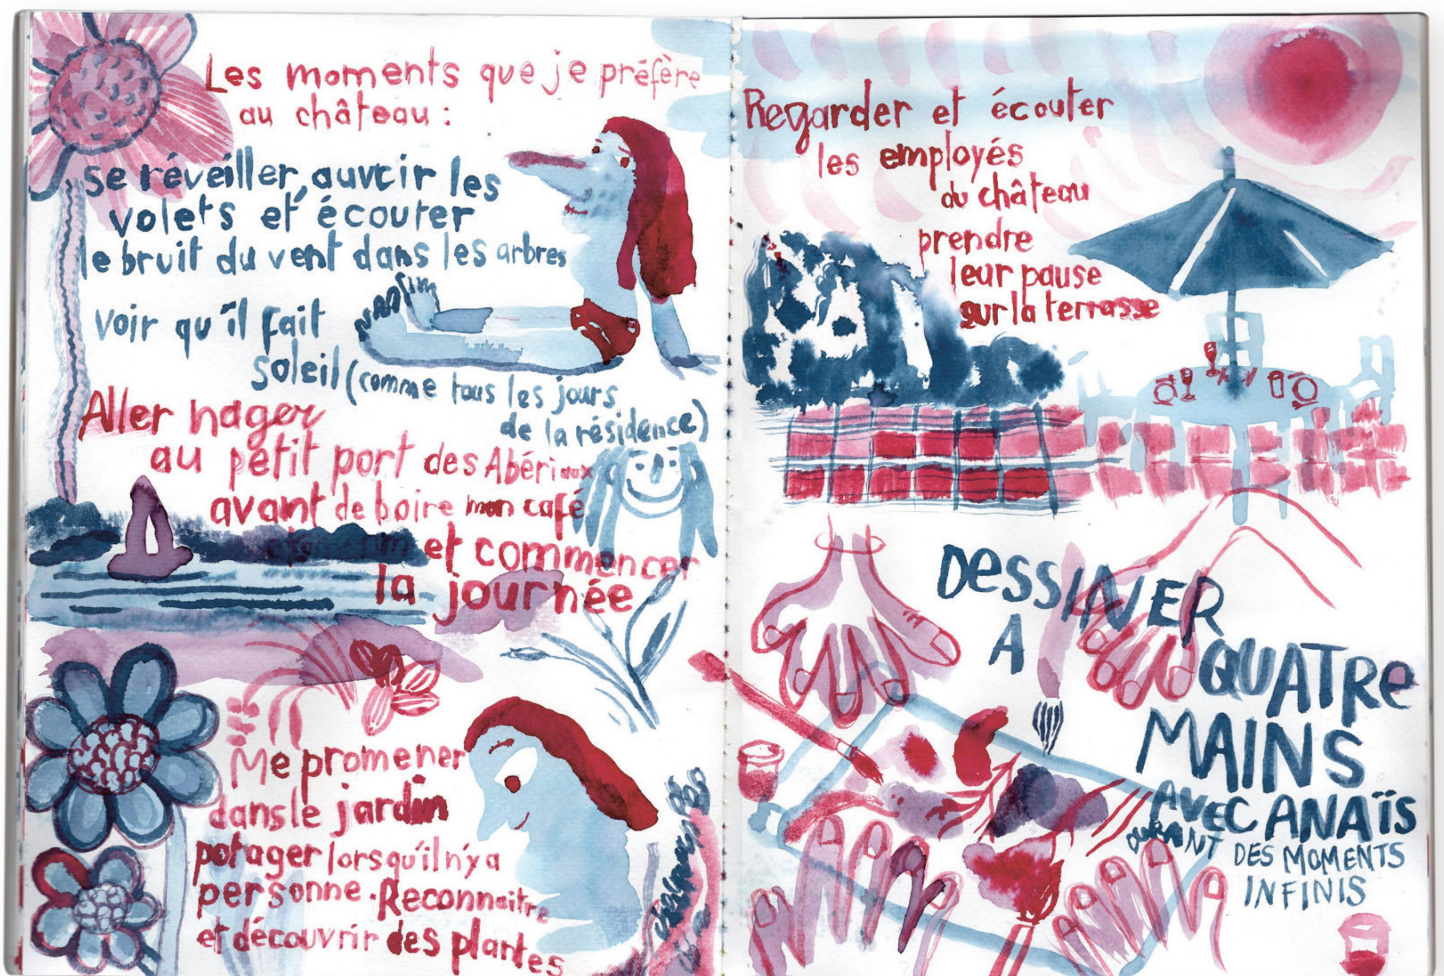 Les moments que je préfère
au château :
se réveiller, ouvrir les
volets et écouter
le bruit du vent dans les arbres
voir qu'il fait
soleil (comme tous les jours
de la résidence)
Aller nager
au petit port des Abériaux
avant de boire mon café
et commencer
la journée
Me promener
dans le jardin
potager lorsqu'il n'y a
personne. Reconnaître
et découvrir des plantes
Regarder et écouter
les employés
du château
prendre
leur pause
sur la terrasse
DESSINER
A
QUATRE
MAINS
AVEC ANAÏS
DURANT DES MOMENTS
INFINIS